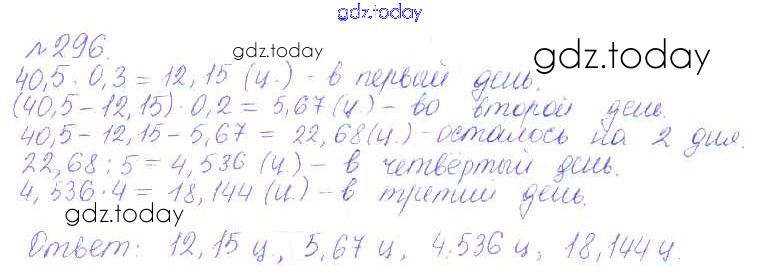 gdz.today
№ 296.
gdz.today
gdz.today
40,5 · 0,3 = 12,15 (ц.) - в первый день.
(40,5 - 12,15) · 0,2 = 5,67 (ц.) - во второй день.
40,5 - 12,15 - 5,67 = 22,68 (ц.) - осталось на 2 дня.
22,68 : 5 = 4,536 (ц.) - в четвёртый день.
4,536 · 4 = 18,144 (ц.) - в третий день.
gdz.today
gdz.today
Ответ: 12,15 ц, 5,67 ц, 4,536 ц, 18,144 ц.